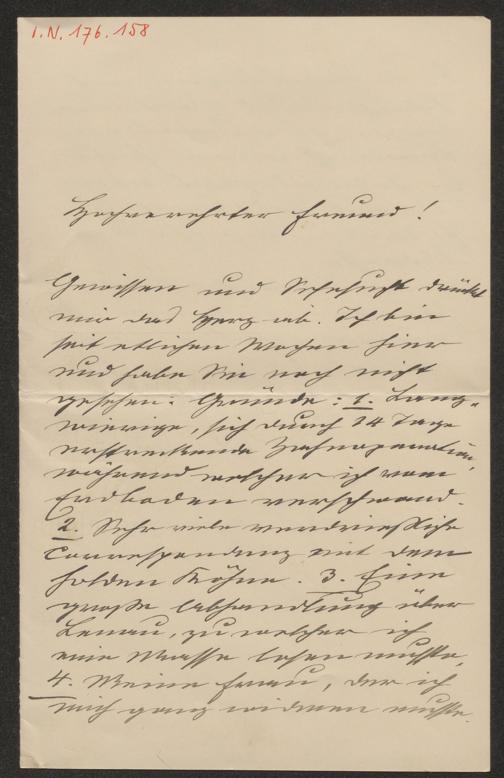 I.N. 176.158
Hochverehrter Freund!
Gewissen und Sehnsucht drückt
mir das Herz ab. Ich bin
seit etlichen Wochen hier
und habe Sie noch nicht
gesehen. Gründe: 1. Lang-
wierige, sich durch 14 Tage
erstreckende Zahnoperation,
während welcher ich vom
Erdboden verschwand.
2. Sehr viele verdrießliche
Correspondenz mit dem
holden Köhne. 3. Eine
große Abhandlung über
Lenau, zu welcher ich
eine Masse lesen mußte,
4. Meine Frau, der ich
mich ganz widmen mußte.